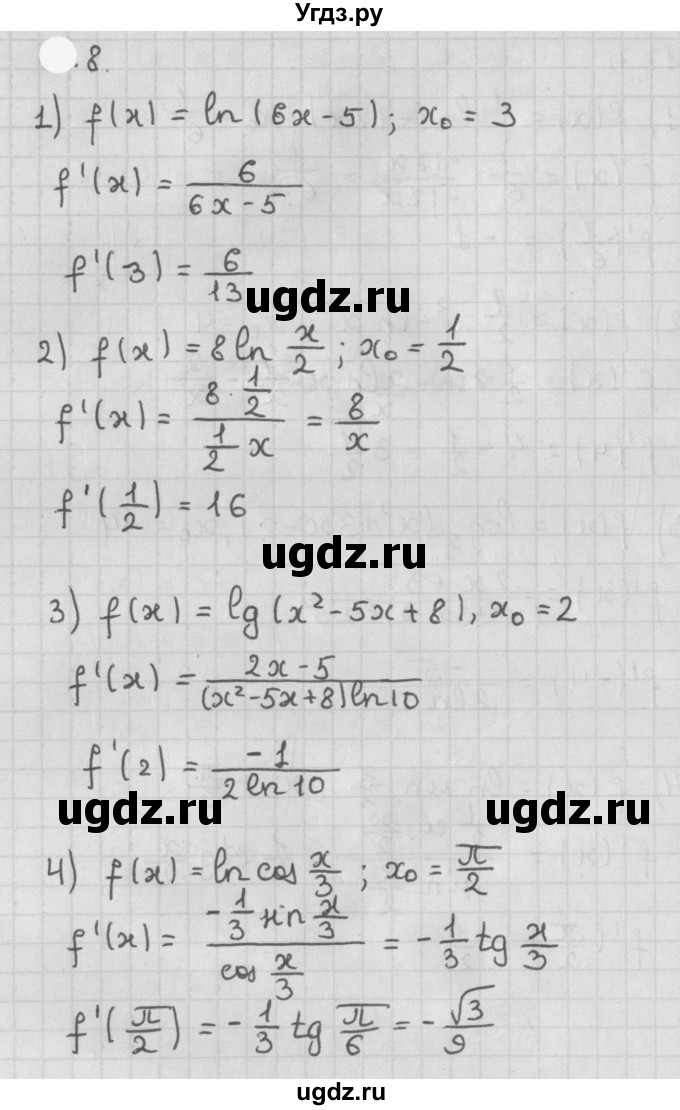 Угдз.ру
.8.
1) f(x) = ln(6x-5); x₀ = 3
f'(x) = 6/(6x-5)
f'(3) = 6/13
ugdz.ru
2) f(x) = 8 ln x/2; x₀ = 1/2
f'(x) = (8·1/2)/(1/2 x) = 8/x
f'(1/2) = 16
ugdz.ru
3) f(x) = lg(x²-5x+8), x₀=2
f'(x) = (2x-5)/((x²-5x+8)ln10)
f'(2) = -1/(2 ln10)
ugdz.ru ugdz.ru
4) f(x) = ln cos x/3; x₀ = π/2
f'(x) = (-1/3 sin x/3)/(cos x/3) = -1/3 tg x/3
f'(π/2) = -1/3 tg π/6 = -√3/9
ugdz.ru